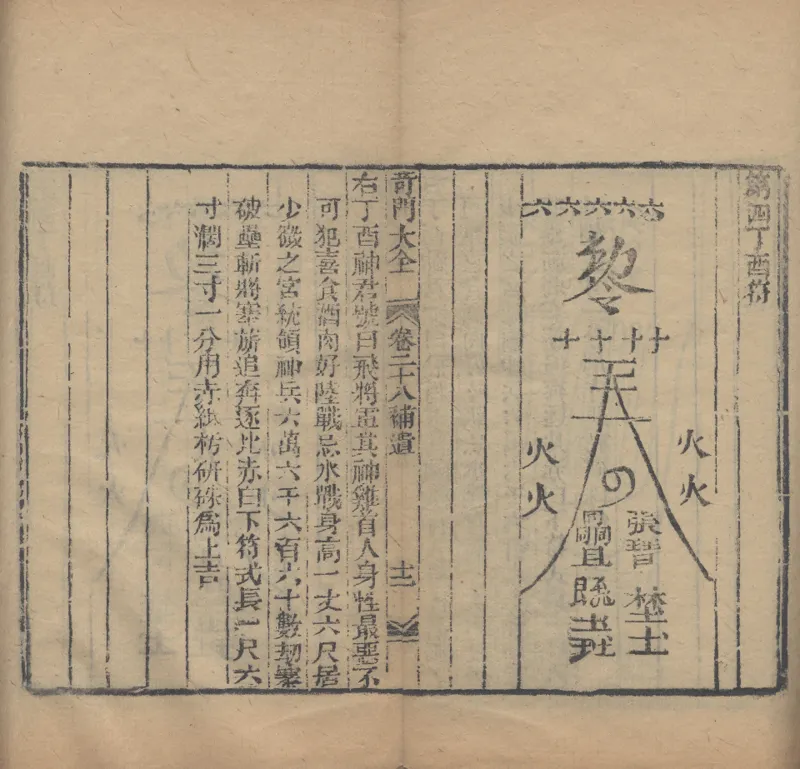 第四丁酉符
六六六六六
十十十十
火火
火火
奇門大全 卷二十八補遺 十二
右丁酉神君號曰飛將盂其神雞首人身性最惡不
可犯喜食酒肉好陸戰忌水戰身高一丈六尺居
少微之宮統領神兵六萬六千六百六十數刼寨
破壘斬將塞前追奔逐北赤白下符式長一尺六
寸濶三寸一分用赤紙杤研硃爲上吉